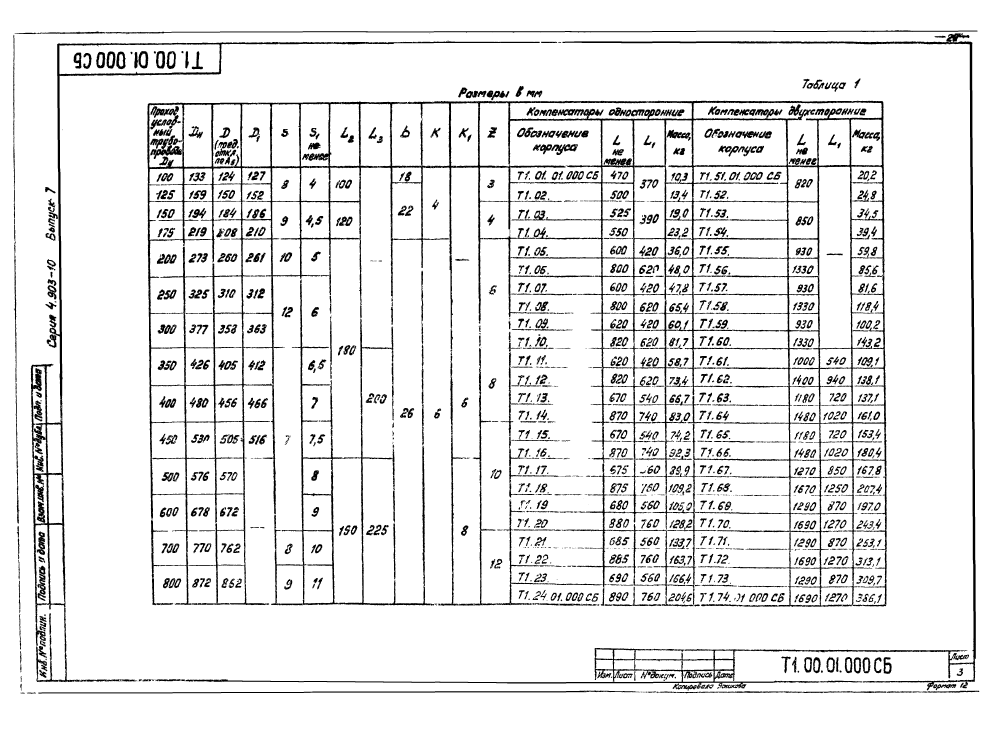 Т1.00.01.000 СБ
Серия 4.903-10 Выпуск 7
Размеры в мм
Таблица 1
Проход условный трубопровода Dу | Dн | D (пред. откл. по А₅) | D₁ | S | S₁ не менее | L₂ | L₃ | b | K | K₁ | Z | Компенсаторы односторонние | Компенсаторы двухсторонние
Обозначение корпуса | L не менее | L₁ | Масса, кг | Обозначение корпуса | L не менее | L₁ | Масса, кг
100 133 124 127 8 4 100 — 18 4 — 3 Т1.01.01.000 СБ 470 370 10,3 Т1.51.01.000 СБ 820 — 20,2
125 159 150 152 22 Т1.02. 500 13,4 Т1.52. 24,8
150 194 184 186 9 4,5 120 4 Т1.03. 525 390 19,0 Т1.53. 850 34,5
175 219 208 210 Т1.04. 550 23,2 Т1.54. 39,4
200 273 260 261 10 5 180 26 6 6 Т1.05. 600 420 36,0 Т1.55. 930 59,8
Т1.06. 800 620 48,0 Т1.56. 1330 85,6
250 325 310 312 12 6 Т1.07. 600 420 47,8 Т1.57. 930 81,6
Т1.08. 800 620 65,4 Т1.58. 1330 118,4
300 377 358 363 Т1.09. 620 420 60,1 Т1.59. 930 100,2
Т1.10. 820 620 81,7 Т1.60. 1330 143,2
350 426 405 412 7 6,5 200 6 8 Т1.11. 620 420 58,7 Т1.61. 1000 540 109,1
Т1.12. 820 620 73,4 Т1.62. 1400 940 138,1
400 480 456 466 7 Т1.13. 670 540 66,7 Т1.63. 1180 720 137,1
Т1.14. 870 740 83,0 Т1.64 1480 1020 161,0
450 530 505 516 7,5 10 Т1.15. 670 540 74,2 Т1.65. 1180 720 153,4
Т1.16. 870 740 92,3 Т1.66. 1480 1020 180,4
500 576 570 — 8 150 225 8 Т1.17. 675 560 89,9 Т1.67. 1270 850 167,8
Т1.18. 875 760 109,2 Т1.68. 1670 1250 207,4
600 678 672 9 Т1.19 680 560 105,0 Т1.69. 1290 870 197,0
Т1.20 880 760 128,2 Т1.70. 1690 1270 243,4
700 770 762 8 10 12 Т1.21 685 560 133,7 Т1.71. 1290 870 253,1
Т1.22. 885 760 163,7 Т1.72. 1690 1270 313,1
800 872 862 9 11 Т1.23. 690 560 166,4 Т1.73. 1290 870 309,7
Т1.24.01.000 СБ 890 760 204,6 Т1.74.01.000 СБ 1690 1270 386,1
Инв. № подлин. Подпись и дата Взам. инв. № Инв. № дубл. Подп. и дата
Изм. Лист № докум. Подпись Дата
Т1.00.01.000 СБ
Лист
3
Копировала
Формат 12